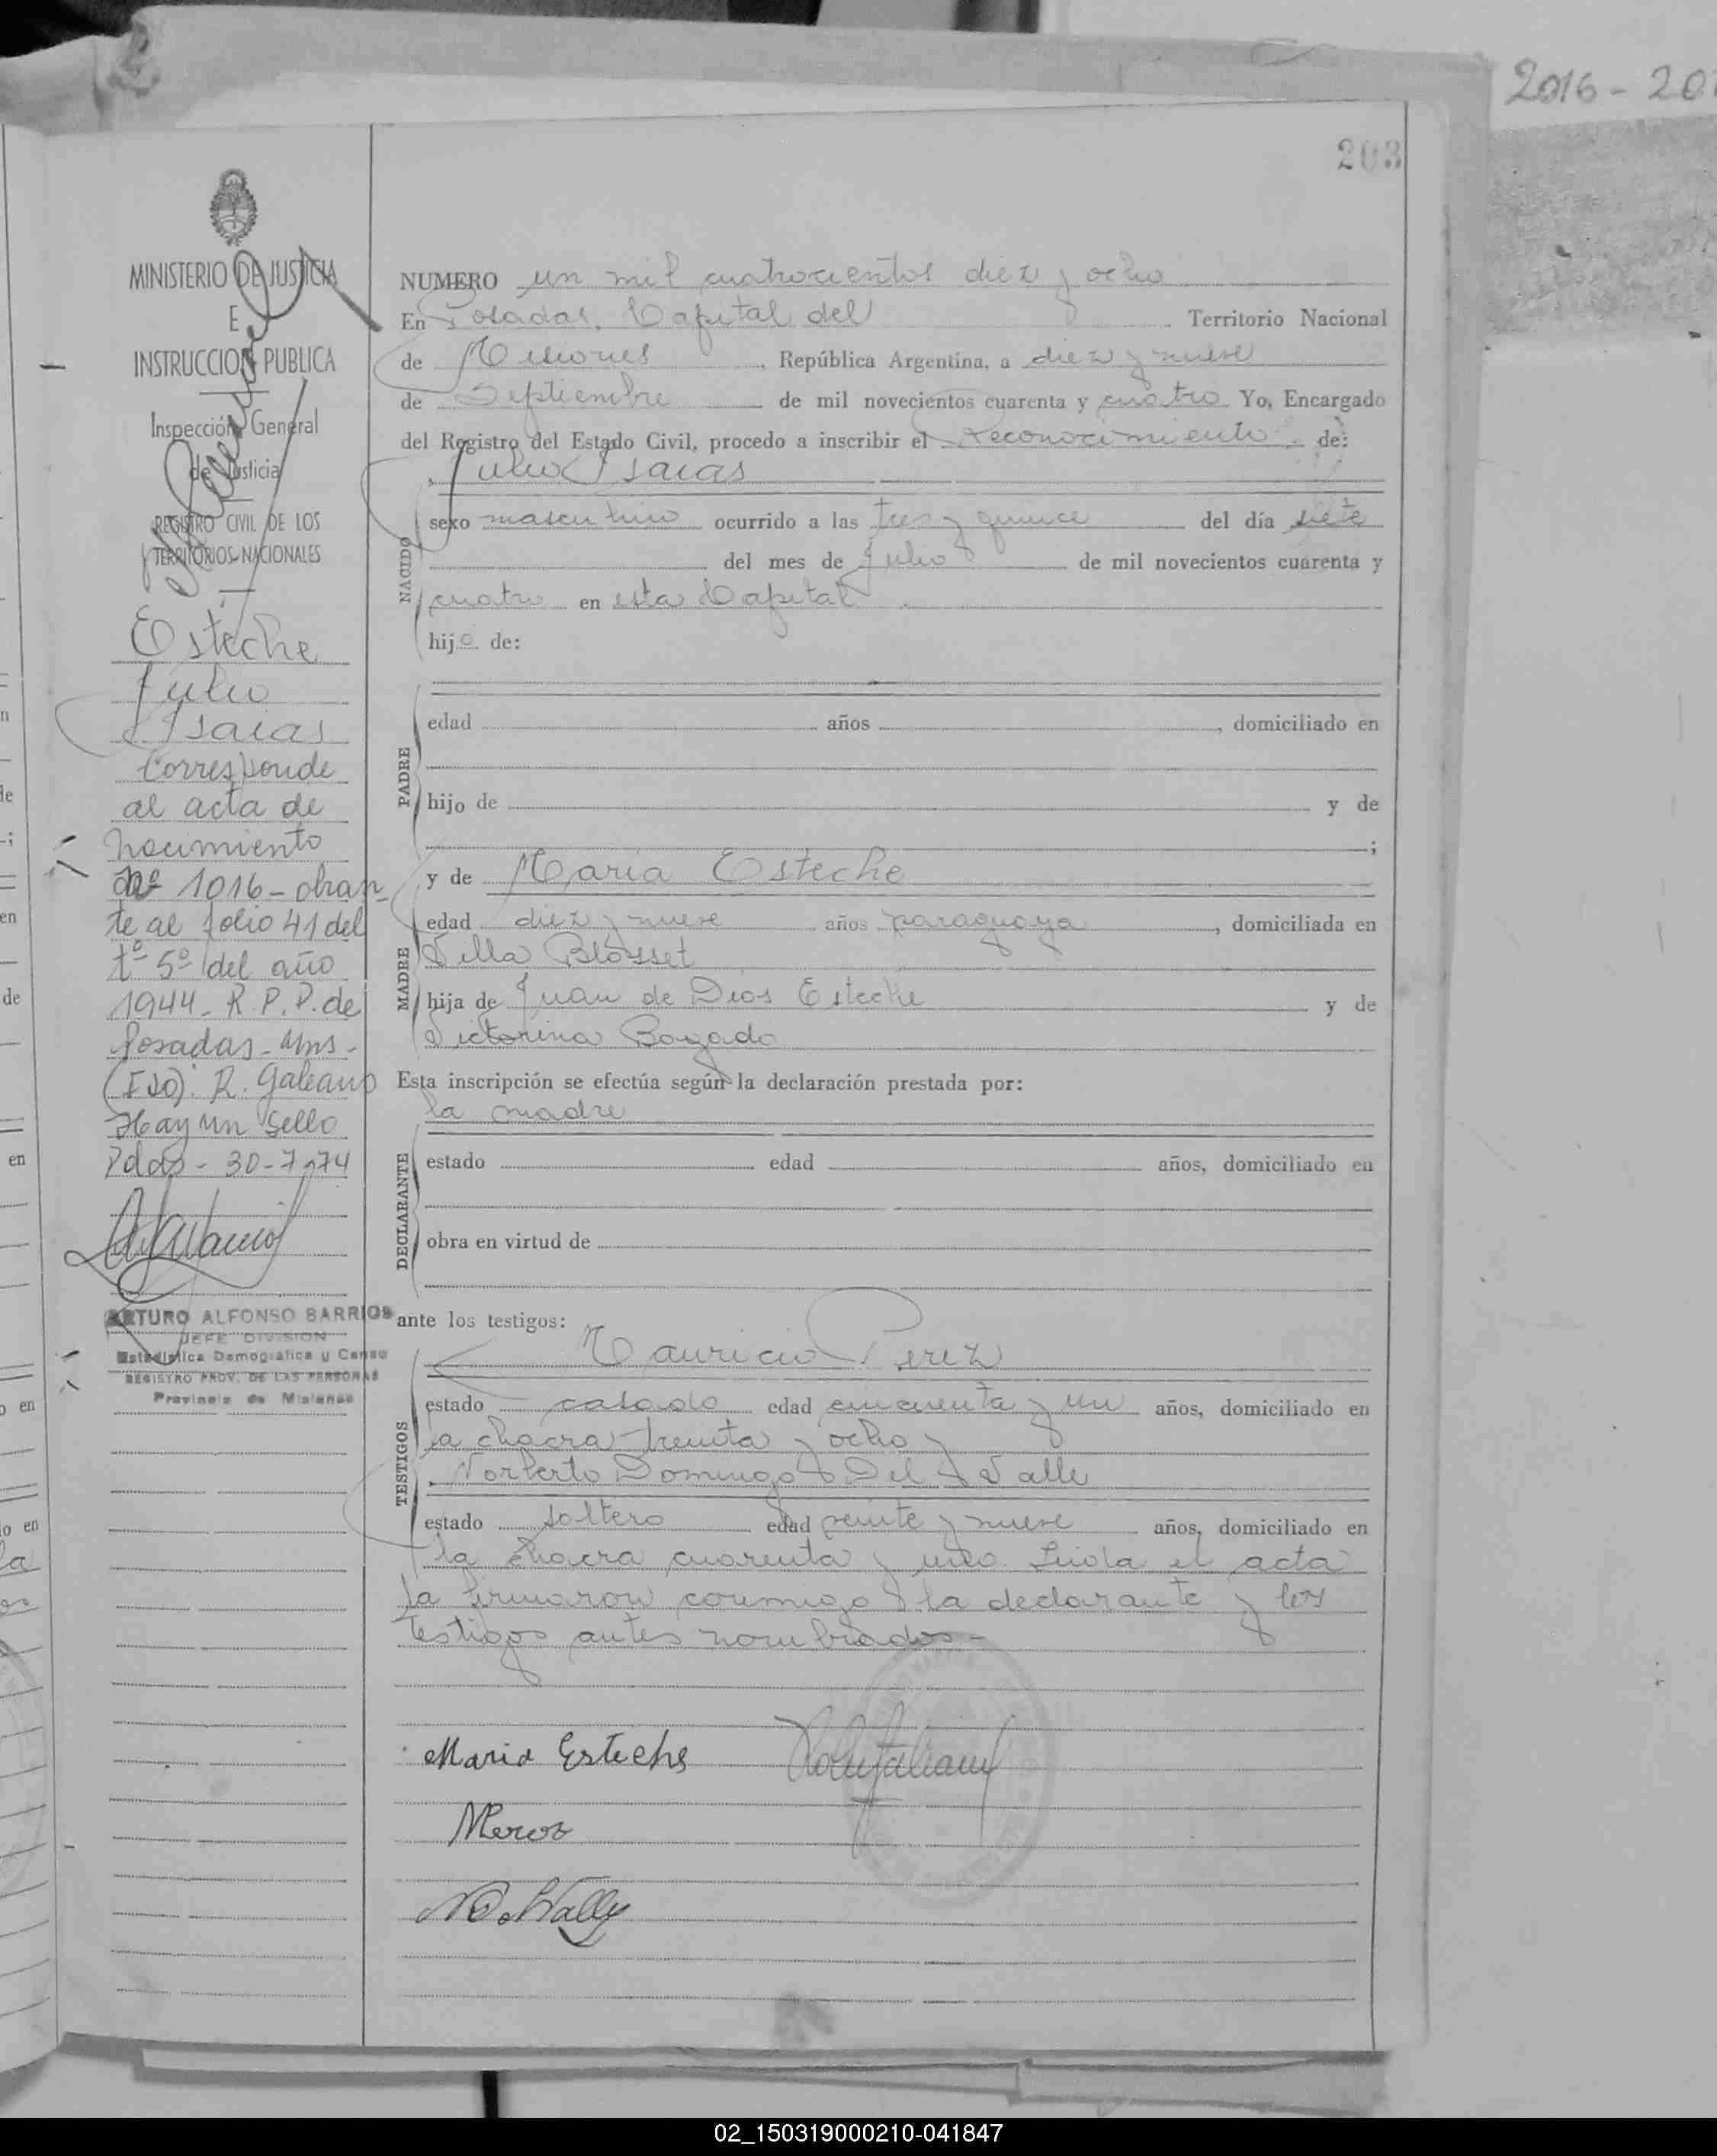 2016-20
203
MINISTERIO DE JUSTICIA
E
INSTRUCCION PUBLICA
Inspección General
de Justicia
REGISTRO CIVIL DE LOS
TERRITORIOS NACIONALES
Esteche
Julio
Isaias
Corresponde
al acta de
nacimiento
Nº 1016 - obran-
te al folio 41 del
tº 5º del año
1944 - R. P. P. de
Posadas - Mns -
(FDO): R. Galeano
Hay un Sello
Pdas - 30-7-74
ARTURO ALFONSO BARRIOS
JEFE DIVISION
Estadistica Demografica y Censo
REGISTRO PROV. DE LAS PERSONAS
Provincia de Misiones
NUMERO un mil cuatrocientos diez y ocho
En Posadas, Capital del Territorio Nacional
de Misiones, República Argentina, a diez y nueve
de Septiembre de mil novecientos cuarenta y cuatro Yo, Encargado
del Registro del Estado Civil, procedo a inscribir el Reconocimiento de:
Julio Isaias
NACIDO
sexo masculino ocurrido a las tres y quince del día siete
del mes de Julio de mil novecientos cuarenta y
cuatro en esta Capital
hijo de:
PADRE
edad años , domiciliado en
hijo de y de
;
MADRE
y de Maria Esteche
edad diez y nueve años paraguaya, domiciliada en
Villa Blosset
hija de Juan de Dios Esteche y de
Victorina Bogado
Esta inscripción se efectúa según la declaración prestada por:
la madre
DECLARANTE
estado edad años, domiciliado en
obra en virtud de
ante los testigos:
Mauricio Perez
TESTIGOS
estado casado edad cincuenta y un años, domiciliado en
la chacra treinta y ocho y
Norberto Domingo Del Valle
estado soltero edad veinte y nueve años, domiciliado en
la chacra cuarenta y uno. Leida el acta
la firmaron conmigo la declarante y los
testigos antes nombrados-
Maria Esteche
02_150319000210-041847